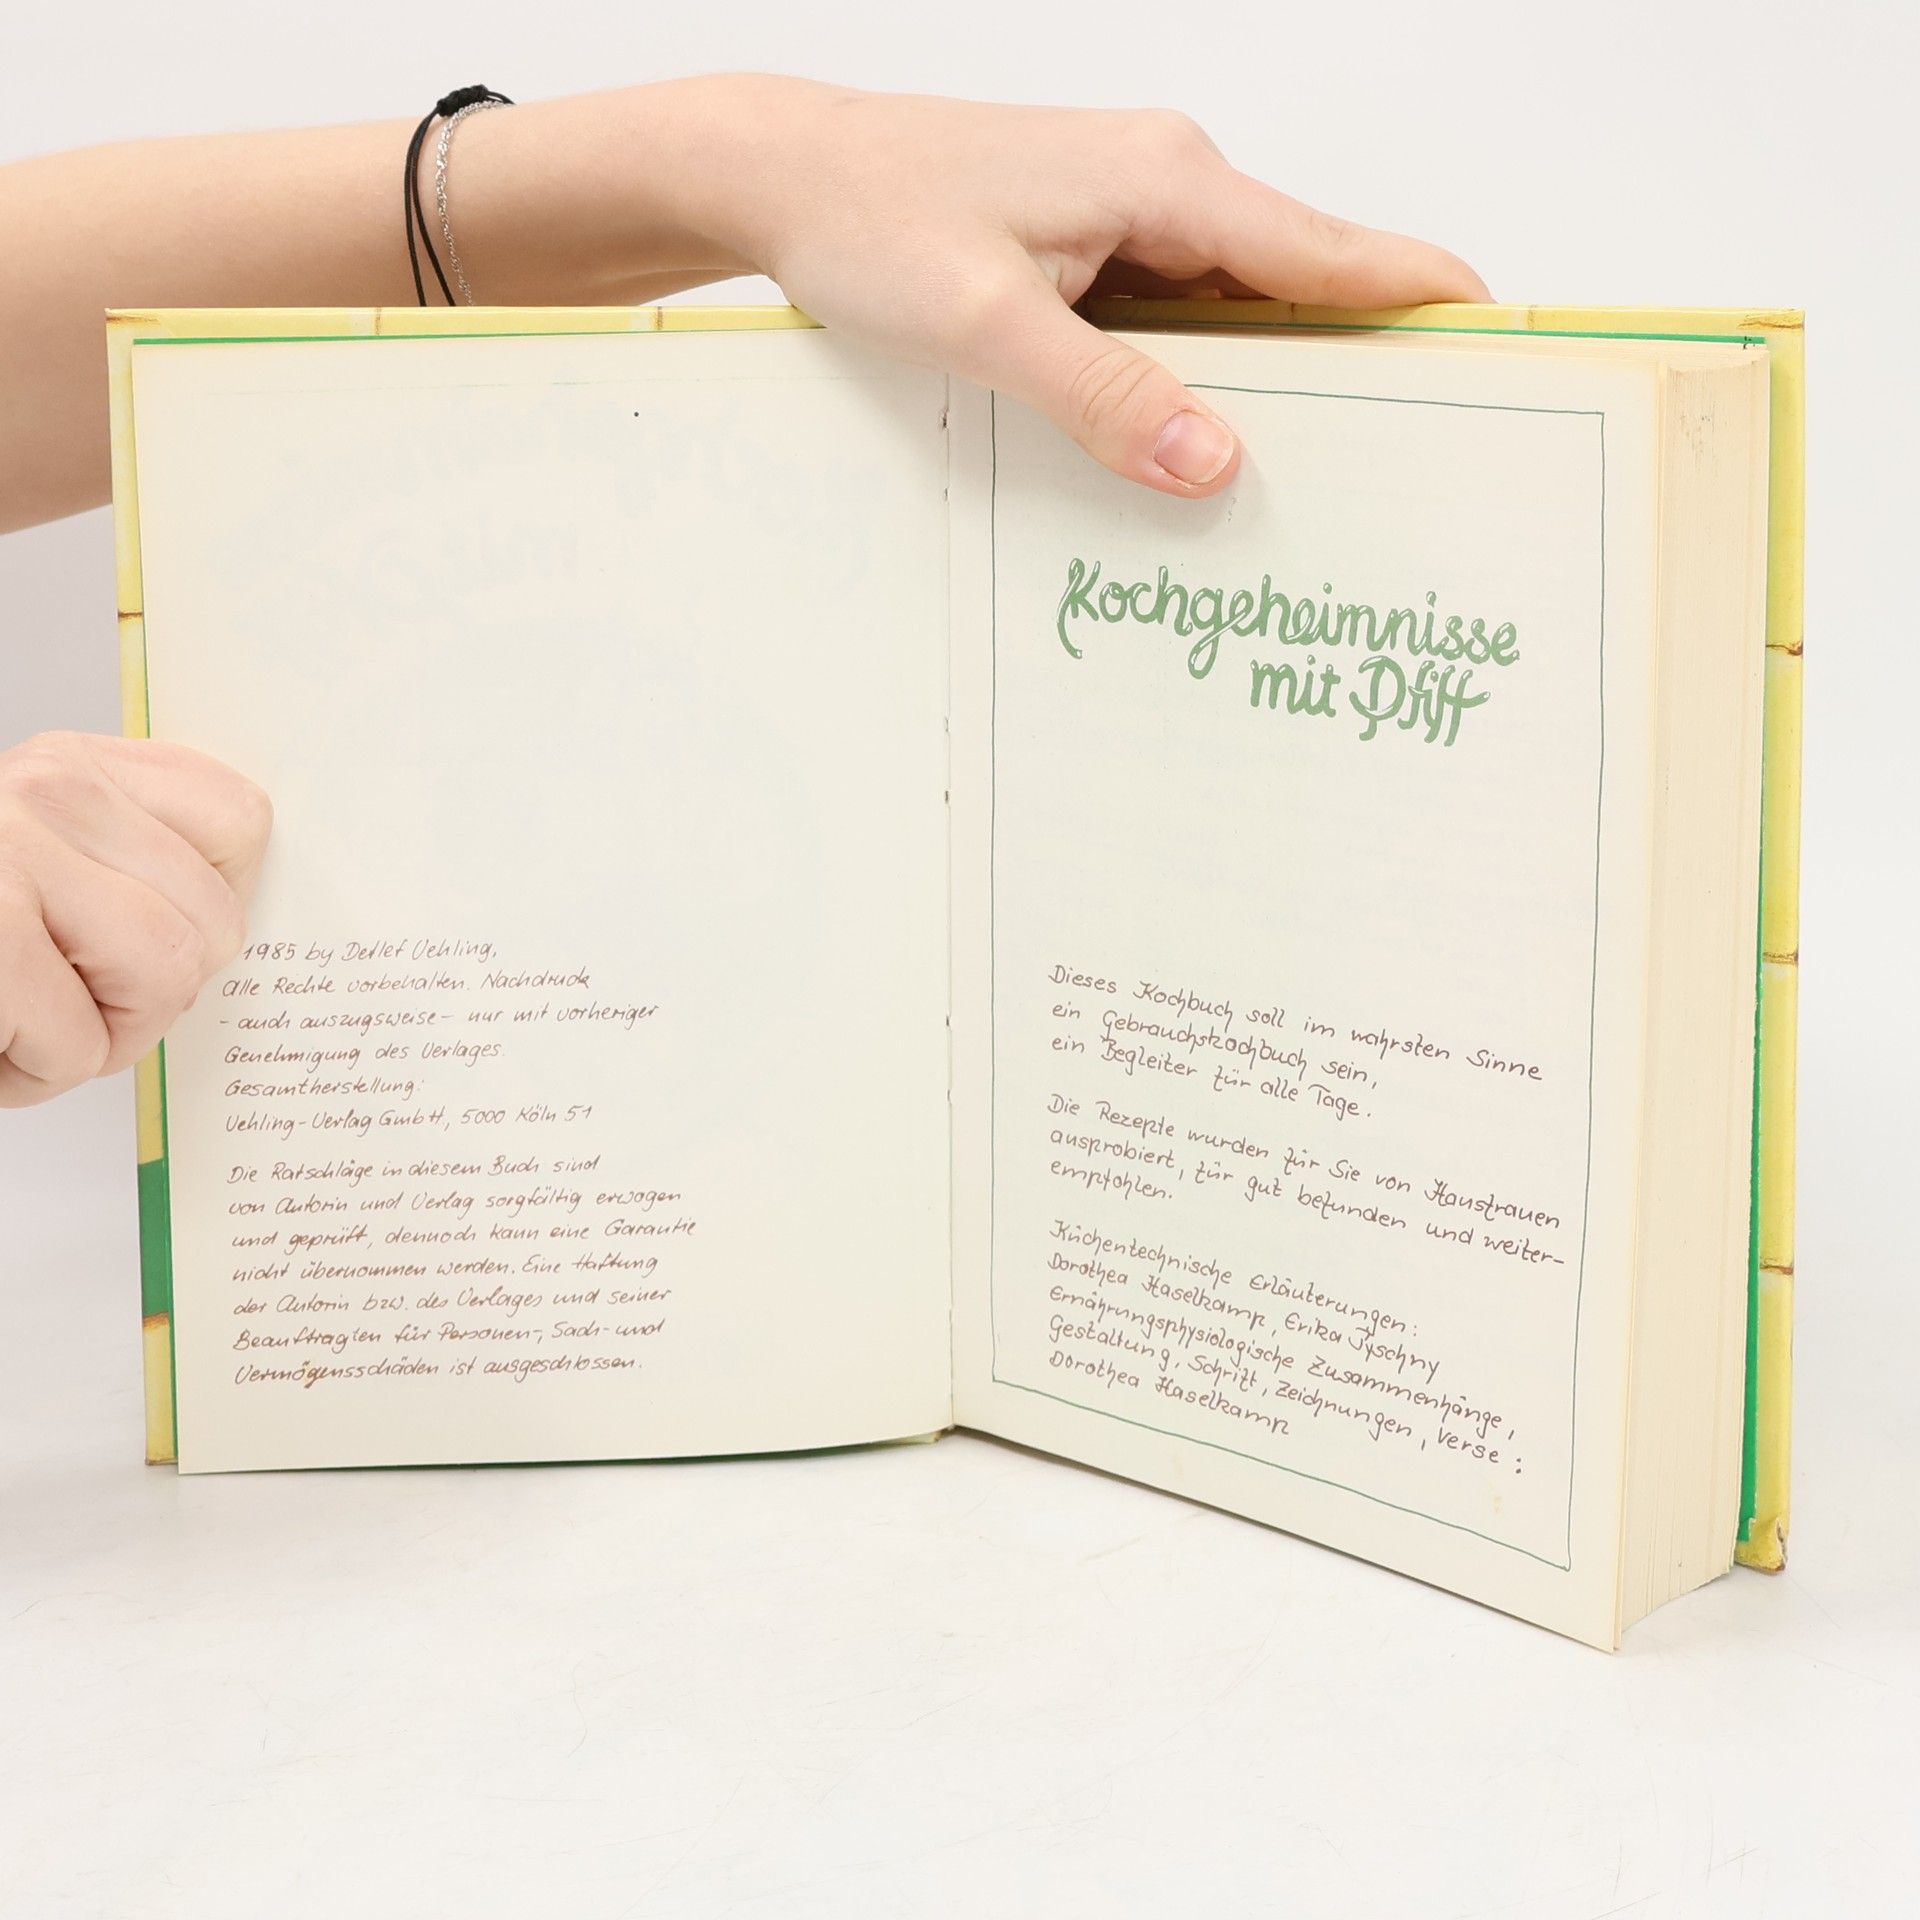 1985 by Detlef Uehling,
Alle Rechte vorbehalten. Nachdruck
- auch auszugsweise - nur mit vorheriger
Genehmigung des Verlages.
Gesamtherstellung:
Uehling-Verlag GmbH, 5000 Köln 51
Die Ratschläge in diesem Buch sind
von Autorin und Verlag sorgfältig erwogen
und geprüft, dennoch kann eine Garantie
nicht übernommen werden. Eine Haftung
der Autorin bzw. des Verlages und seiner
Beauftragten für Personen-, Sach- und
Vermögensschäden ist ausgeschlossen.
Kochgeheimnisse
mit Pfiff
Dieses Kochbuch soll im wahrsten Sinne
ein Gebrauchskochbuch sein,
ein Begleiter für alle Tage.
Die Rezepte wurden für Sie von Hausfrauen
ausprobiert, für gut befunden und weiter-
empfohlen.
Küchentechnische Erläuterungen:
Dorothea Haselkamp, Erika Tyschny
Ernährungsphysiologische Zusammenhänge,
Gestaltung, Schrift, Zeichnungen, Verse:
Dorothea Haselkamp